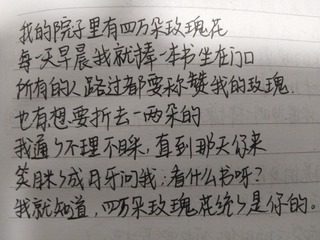 我的院子里有四万朵玫瑰花
每一天早晨我就捧一本书坐在门口
所有的人路过都要称赞我的玫瑰.
也有想要折去一两朵的
我通々不理不睬,直到那天你来
笑眯々成月牙问我:看什么书呀?
我就知道,四万朵玫瑰花统々是你的。